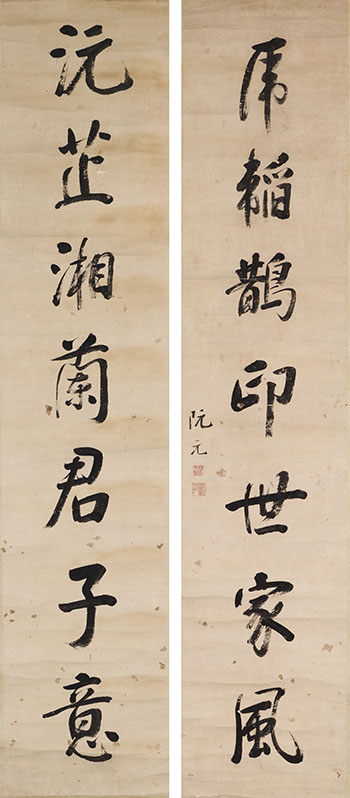 虎韜鵲印世家風
阮元
沅芷湘蘭君子意